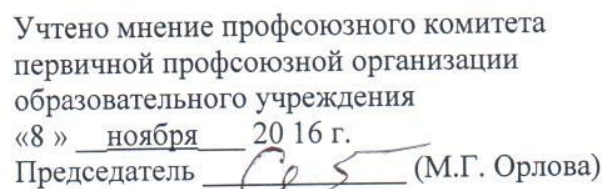 Учтено мнение профсоюзного комитета
первичной профсоюзной организации
образовательного учреждения
«8 » __ноября___ 20 16 г.
Председатель _______________ (М.Г. Орлова)